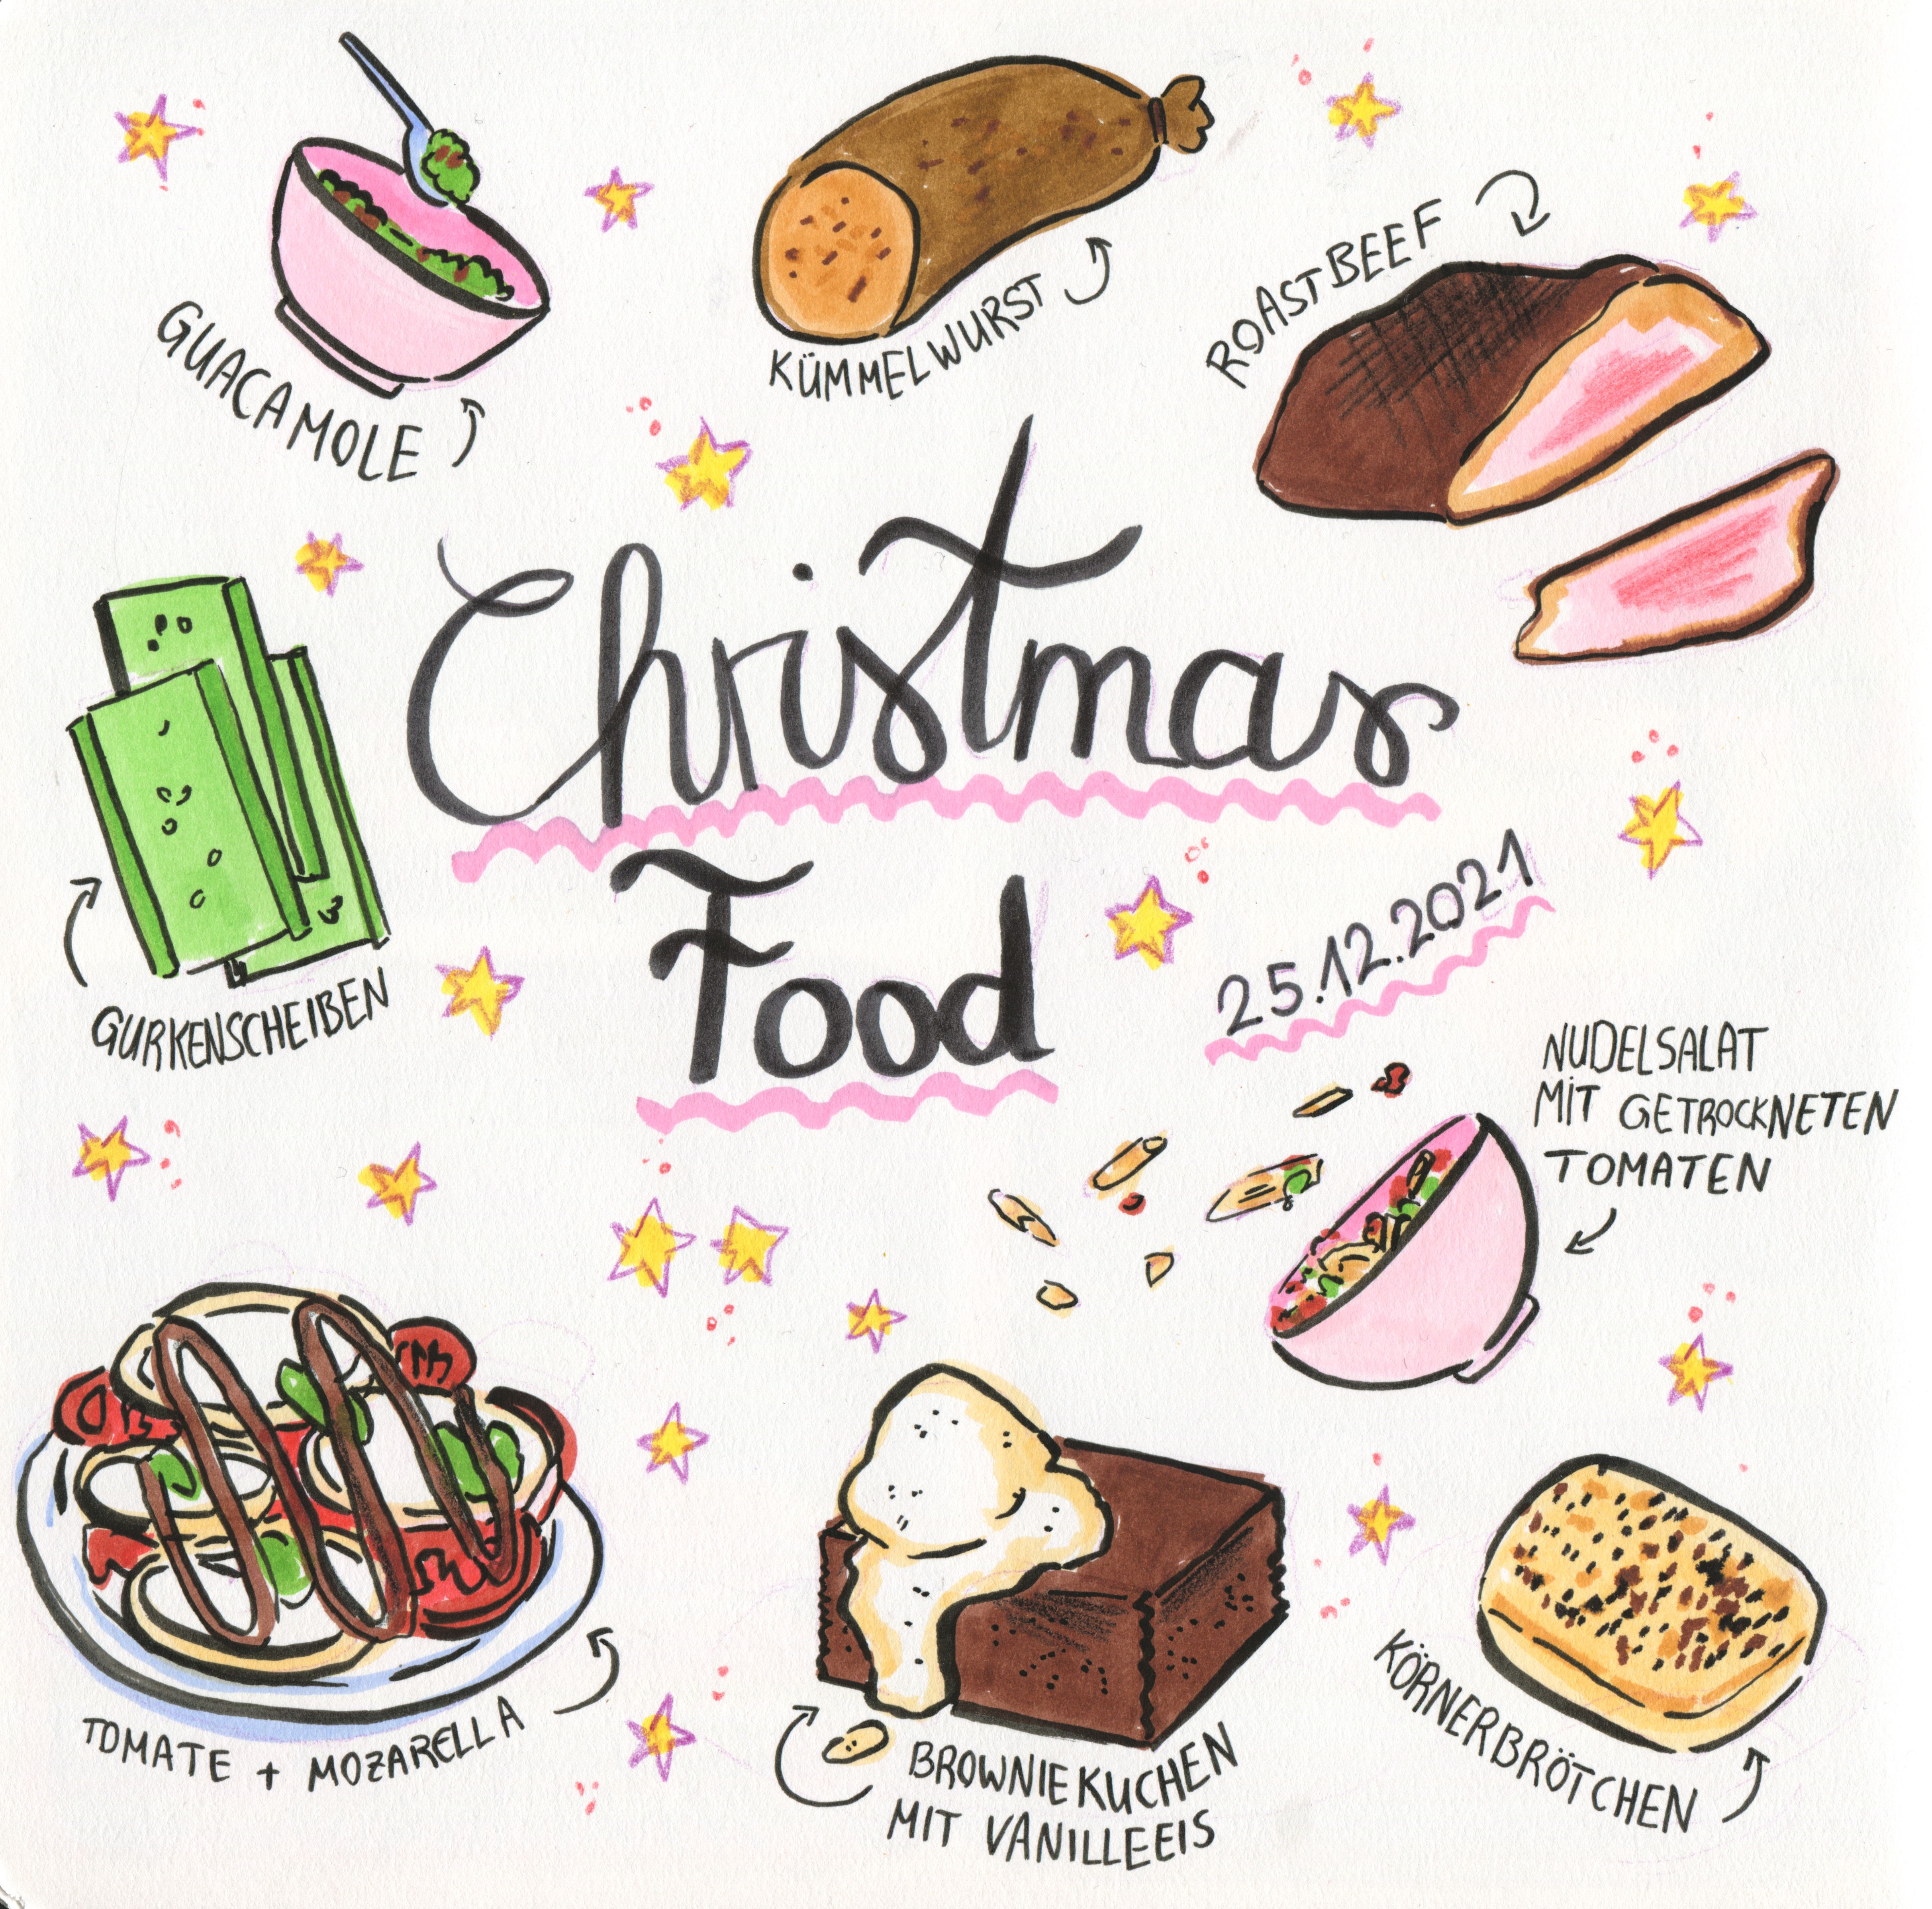 GUACAMOLE
KÜMMELWURST
ROASTBEEF
Christmas
Food
25.12.2021
GURKENSCHEIBEN
NUDELSALAT
MIT GETROCKNETEN
TOMATEN
TOMATE + MOZARELLA
BROWNIEKUCHEN
MIT VANILLEEIS
KÖRNERBRÖTCHEN